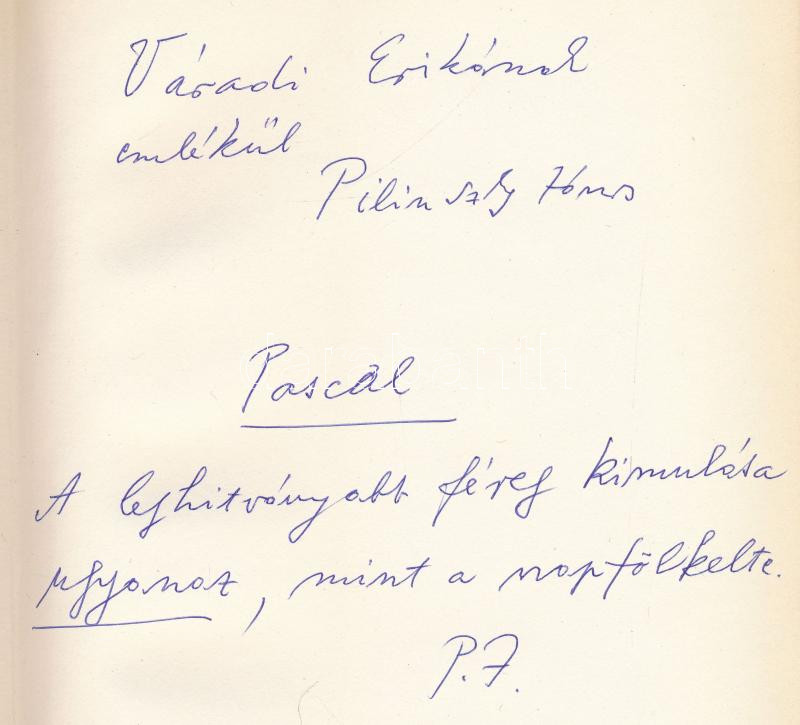 Váradi Erikának
emlékül
Pilinszky János
Pascal
A leghitványabb féreg kimulása
ugyanaz, mint a napfölkelte.
P.J.